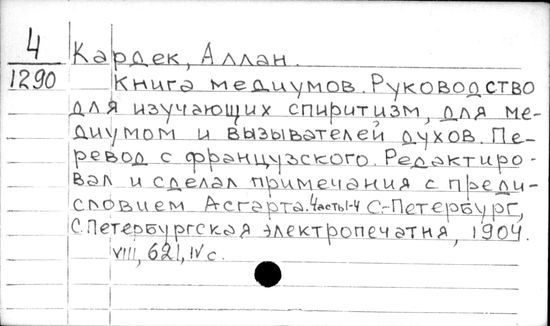 4
1290
Кардек, Аллан.
Книга медиумов. Руководство
для изучающих спиритизм, для ме-
диумом и вызывателей духов. Пе-
ревод с французского. Редактиро-
вал и сделал примечания с преди-
словием Асгарта. Часть I-4 С.-Петербург,
С.Петербургская электропечатня, 1904.
VIII, 621, IV с.